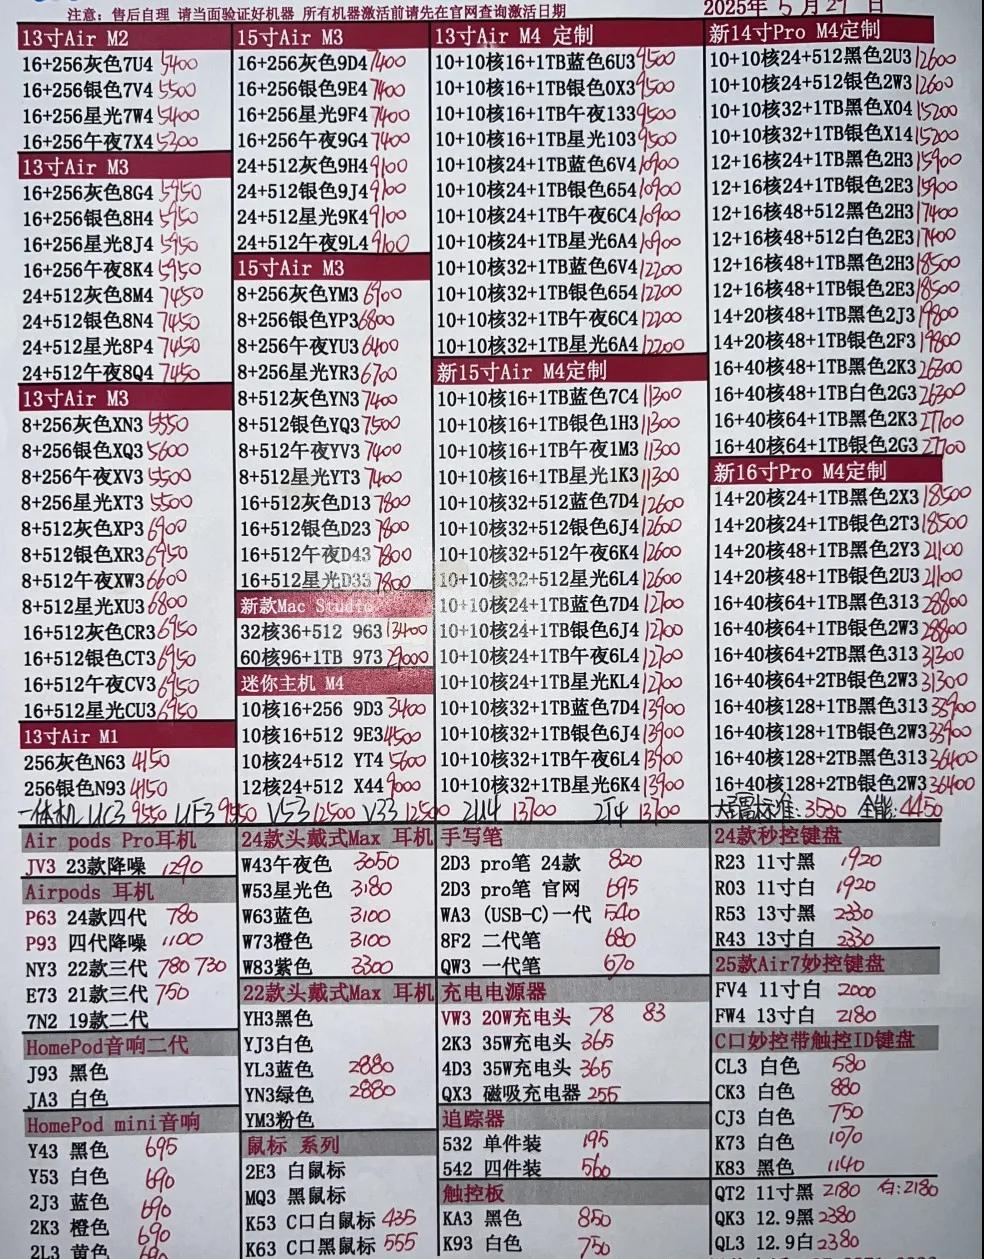 注意：售后自理 请当面验证好机器 所有机器激活前请先在官网查询激活日期
2025年 5 月 27 日
13寸Air M2
16+256灰色7U4 5400
16+256银色7V4 5500
16+256星光7W4 5400
16+256午夜7X4 5300
13寸Air M3
16+256灰色8G4 5950
16+256银色8H4 5950
16+256星光8J4 5950
16+256午夜8K4 5950
24+512灰色8M4 7450
24+512银色8N4 7450
24+512星光8P4 7450
24+512午夜8Q4 7450
13寸Air M3
8+256灰色XN3 5550
8+256银色XQ3 5600
8+256午夜XV3 5500
8+256星光XT3 5500
8+512灰色XP3 6900
8+512银色XR3 6950
8+512午夜XW3 6600
8+512星光XU3 6800
16+512灰色CR3 6950
16+512银色CT3 6950
16+512午夜CV3 6950
16+512星光CU3 6950
13寸Air M1
256灰色N63 4150
256银色N93 4150
15寸Air M3
16+256灰色9D4 7400
16+256银色9E4 7400
16+256星光9F4 7400
16+256午夜9G4 7400
24+512灰色9H4 9100
24+512银色9J4 9100
24+512星光9K4 9100
24+512午夜9L4 9100
15寸Air M3
8+256灰色YM3 6900
8+256银色YP3 6800
8+256午夜YU3 6400
8+256星光YR3 6700
8+512灰色YN3 7400
8+512银色YQ3 7500
8+512午夜YV3 7400
8+512星光YT3 7400
16+512灰色D13 7800
16+512银色D23 7800
16+512午夜D43 7800
16+512星光D33 7800
新款Mac Studio
32核36+512 963 13400
60核96+1TB 973 29000
迷你主机 M4
10核16+256 9D3 3400
10核16+512 9E3 4500
10核24+512 YT4 5600
12核24+512 X44 9000
13寸Air M4 定制
10+10核16+1TB蓝色6U3 9500
10+10核16+1TB银色0X3 9500
10+10核16+1TB午夜133 9500
10+10核16+1TB星光103 9500
10+10核24+1TB蓝色6V4 10900
10+10核24+1TB银色654 10900
10+10核24+1TB午夜6C4 10900
10+10核24+1TB星光6A4 10900
10+10核32+1TB蓝色6V4 12200
10+10核32+1TB银色654 12200
10+10核32+1TB午夜6C4 12200
10+10核32+1TB星光6A4 12200
新15寸Air M4定制
10+10核16+1TB蓝色7C4 11300
10+10核16+1TB银色1H3 11300
10+10核16+1TB午夜1M3 11300
10+10核16+1TB星光1K3 11300
10+10核32+512蓝色7D4 12600
10+10核32+512银色6J4 12600
10+10核32+512午夜6K4 12600
10+10核32+512星光6L4 12600
10+10核24+1TB蓝色7D4 12700
10+10核24+1TB银色6J4 12700
10+10核24+1TB午夜6L4 12700
10+10核24+1TB星光KL4 12700
10+10核32+1TB蓝色7D4 13900
10+10核32+1TB银色6J4 13900
10+10核32+1TB午夜6L4 13900
10+10核32+1TB星光6K4 13900
新14寸Pro M4定制
10+10核24+512黑色2U3 12600
10+10核24+512银色2W3 12600
10+10核32+1TB黑色X04 15200
10+10核32+1TB银色X14 15200
12+16核24+1TB黑色2H3 15900
12+16核24+1TB银色2E3 15900
12+16核48+512黑色2H3 17400
12+16核48+512白色2E3 17400
12+16核48+1TB黑色2H3 18500
12+16核48+1TB银色2E3 18500
14+20核48+1TB黑色2J3 19800
14+20核48+1TB银色2F3 19800
16+40核48+1TB黑色2K3 26300
16+40核48+1TB白色2G3 26300
16+40核64+1TB黑色2K3 27700
16+40核64+1TB银色2G3 27700
新16寸Pro M4定制
14+20核24+1TB黑色2X3 18500
14+20核24+1TB银色2T3 18500
14+20核48+1TB黑色2Y3 21100
14+20核48+1TB银色2U3 21100
16+40核64+1TB黑色313 28800
16+40核64+1TB银色2W3 28800
16+40核64+2TB黑色313 31300
16+40核64+2TB银色2W3 31300
16+40核128+1TB黑色313 33900
16+40核128+1TB银色2W3 33900
16+40核128+2TB黑色313 36400
16+40核128+2TB银色2W3 36400
一体机 UC3 9550 UF3 9550 V53 12500 V33 12500 2U4 13700 2T4 13700 标准: 3530 全能: 4450
Air pods Pro耳机
JV3 23款降噪 1290
Airpods 耳机
P63 24款四代 780
P93 四代降噪 1100
NY3 22款三代 780 730
E73 21款三代 750
7N2 19款二代
HomePod音响二代
J93 黑色
JA3 白色
HomePod mini音响
Y43 黑色 695
Y53 白色 690
2J3 蓝色 690
2K3 橙色 690
2L3 黄色 690
24款头戴式Max 耳机
W43午夜色 3050
W53星光色 3180
W63蓝色 3100
W73橙色 3100
W83紫色 3300
22款头戴式Max 耳机
YH3黑色
YJ3白色
YL3蓝色 2880
YN3绿色 2880
YM3粉色
鼠标 系列
2E3 白鼠标
MQ3 黑鼠标
K53 C口白鼠标 435
K63 C口黑鼠标 555
手写笔
2D3 pro笔 24款 820
2D3 pro笔 官网 695
WA3 (USB-C)一代 540
8F2 二代笔 680
QW3 一代笔 670
充电电源器
VW3 20W充电头 78 83
2K3 35W充电头 365
4D3 35W充电头 365
QX3 磁吸充电器 255
追踪器
532 单件装 195
542 四件装 560
触控板
KA3 黑色 850
K93 白色 750
24款秒控键盘
R23 11寸黑 1920
R03 11寸白 1920
R53 13寸黑 2330
R43 13寸白 2330
25款Air7妙控键盘
FV4 11寸白 2000
FW4 13寸白 2180
C口妙控带触控ID键盘
CL3 白色 580
CK3 白色 880
CJ3 白色 750
K73 白色 1070
K83 黑色 1140
QT2 11寸黑 2180 白:2180
QK3 12.9黑 2380
QL3 12.9白 2380